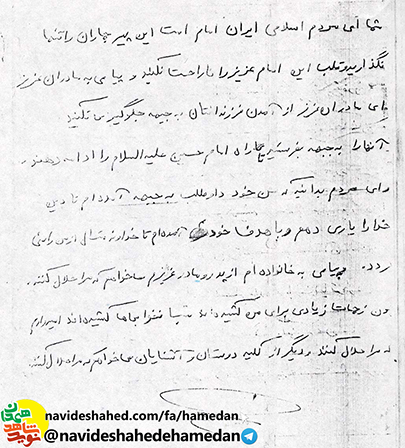 شما ای مردم اسلامی ایران امام است این پیر جماران را تنها
نگذارید و قلب این امام عزیز را ناراحت نکنید و پیامی به مادران عزیز
ای مادران عزیز از آمدن فرزندانتان به جبهه جلوگیری نکنید
آنها را به جبهه بفرستید تا راه امام حسین علیه السلام را ادامه دهند و
و ای مردم بدانید که من خود داوطلب به جبهه آمده ام تا دین
خدا را یاری دهم و با هدف خود آمده ام تا خداوند متعال از من راضی
گردد. پیامی به خانواده ام از پدر و مادر عزیزم میخواهم که مرا حلال کنند.
چون زحمات زیادی برای من کشیده اند و شبها کشیده اند امیدوارم
که مرا حلال کنند و دیگر از کلیه دوستان و آشنایان میخواهم که مرا حلال کنند
navideshahed.com/fa/hamedan
@navideshahedehamedan
نوید شاهد
همدان